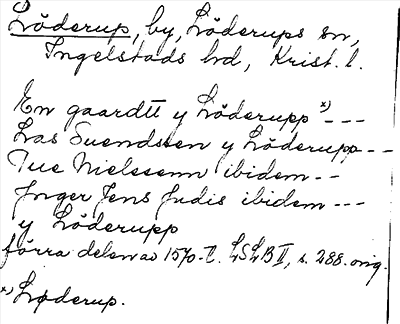 Löderup, by, Löderups sn,
Ingelstads hd, Krist. l.
En gaardtt y Löderupp *) ---
Las Suendssen y Löderupp ---
Tue Nielssenn ibidem --
Jnger Jens Judis ibidem ---
y Löderupp
förra delen av 1570-t. LSLB II, s. 288. orig.
*) Løderup.